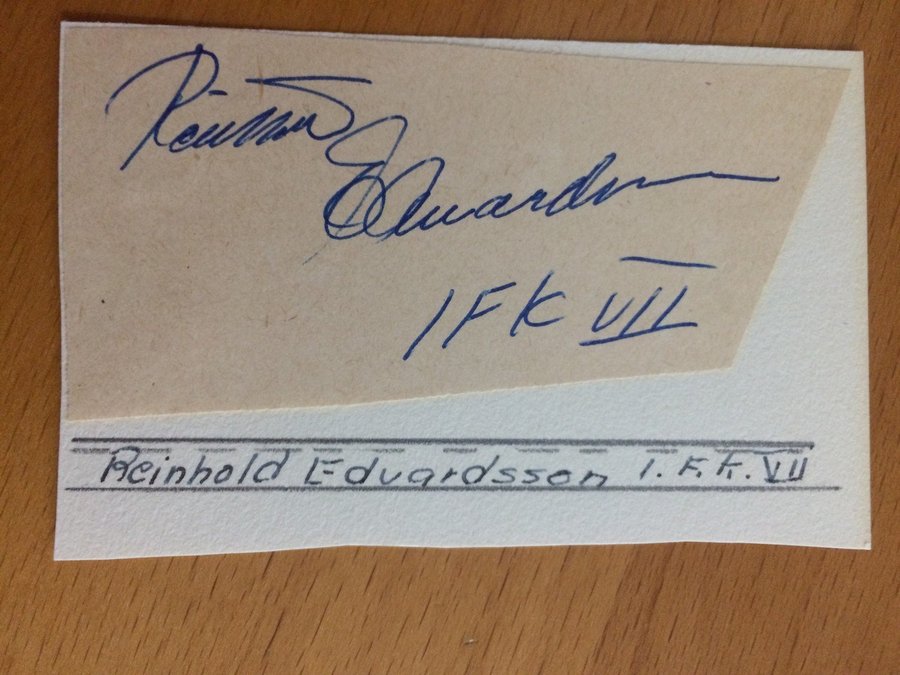 Reinhold
Eduardsson
IFK VII
Reinhold Eduardsson I.F.K. VII